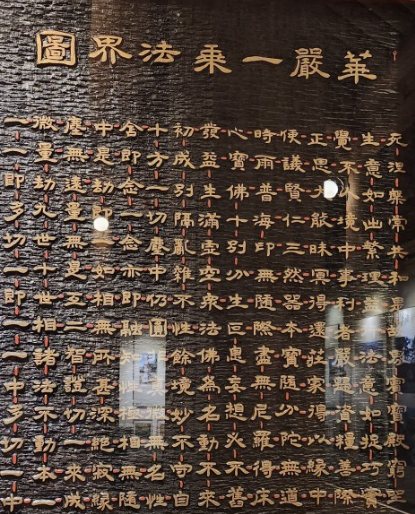 華嚴一乘法界圖
死涅槃常共和是故界實寶殿窮坐
生意如出繁理益行法意如捉巧實
覺不人境中事利者嚴歸資糧善際
正思大能昧冥得還莊家得以緣中
便議賢仁三然器本寶隨分陀無道
時雨普海印無隨際盡無尼羅得床
心寶佛十別分生叵息妄想必不舊
發益生滿虛空衆法佛爲名動不來
初成別隔亂雜不性餘境妙不守自
十方一切塵中仍圓無名性
含即念一念亦即融知性極相無隨
中是劫即一如相無所甚深絕寂緣
塵無遠量無是互二智證切一來成
微量劫九世十世相諸法不動本一
一一即多切一即一一中多切一中